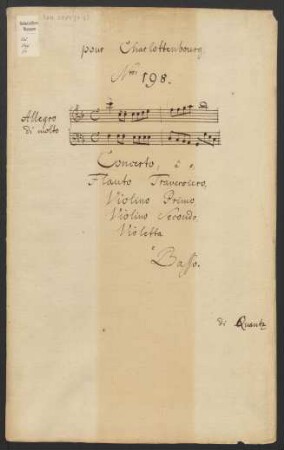 pour Charlottenbourg
Nro 198.
Allegro
di molto
Concerto, à 5,
Flauto Traversiero,
Violino Primo,
Violino Secondo,
Violetta
è
Basso.
di Quantz